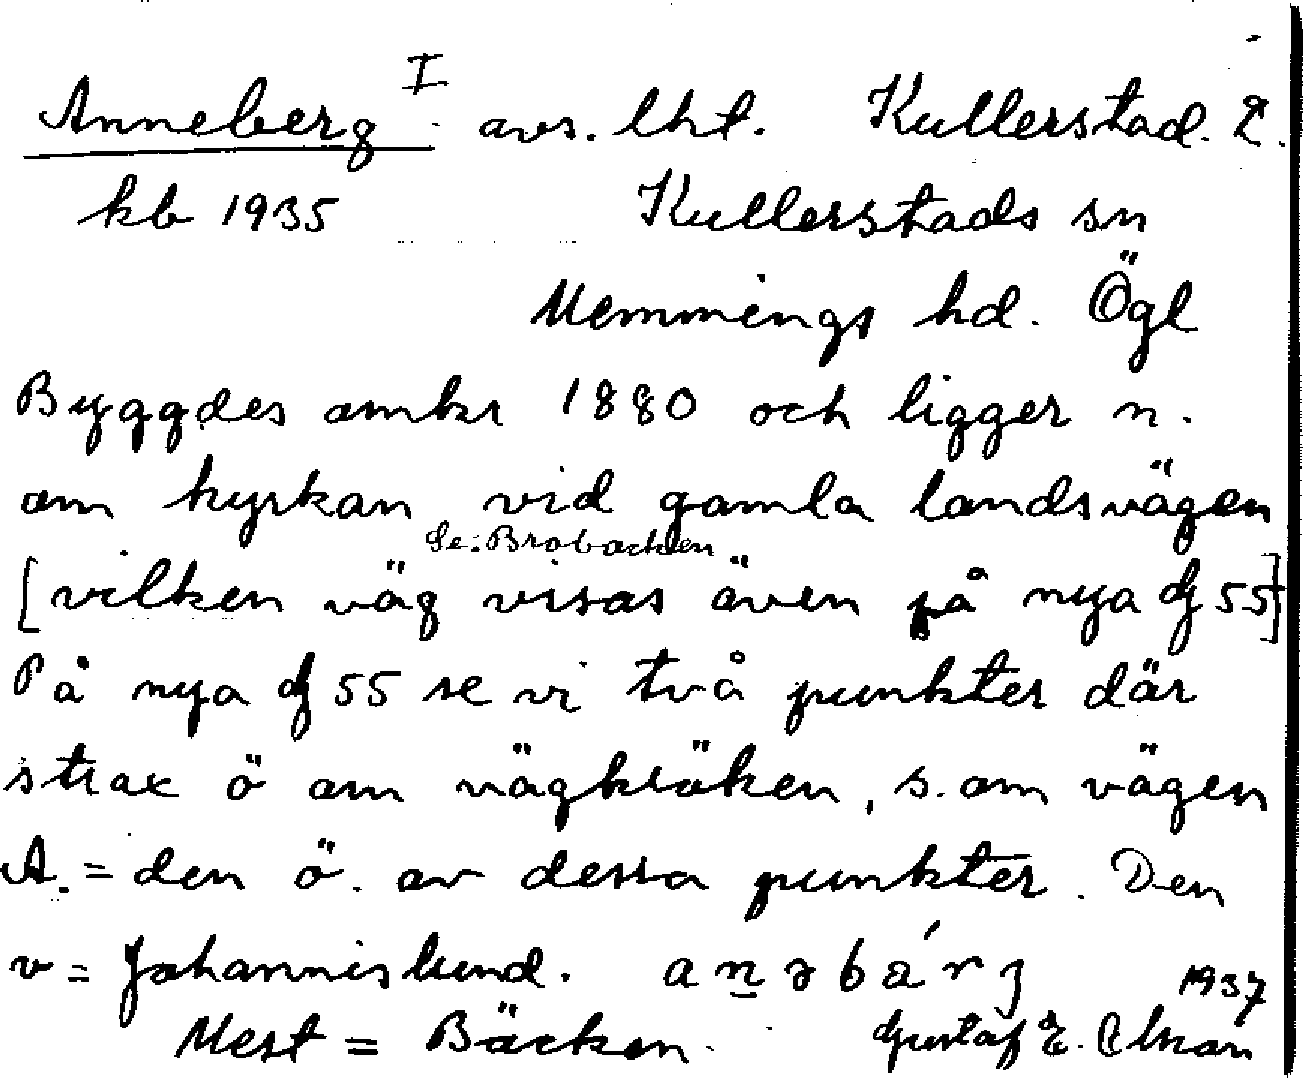 Anneberg I avs. lht. Kullerstad. Ä.
kb 1935 Kullerstads sn
Memmings hd. Ögl
Byggdes omkr 1880 och ligger n.
om kyrkan vid gamla landsvägen
Se: Brobacken
[vilken väg visas även på nya gf 55]
På nya gf 55 se vi två punkter där
strax ö om vägkröken, s. om vägen
A. = den ö. av dessa punkter. Den
v = Johanneslund. an̲əbárj 1937
Mest = Bäcken. Gustaf E.